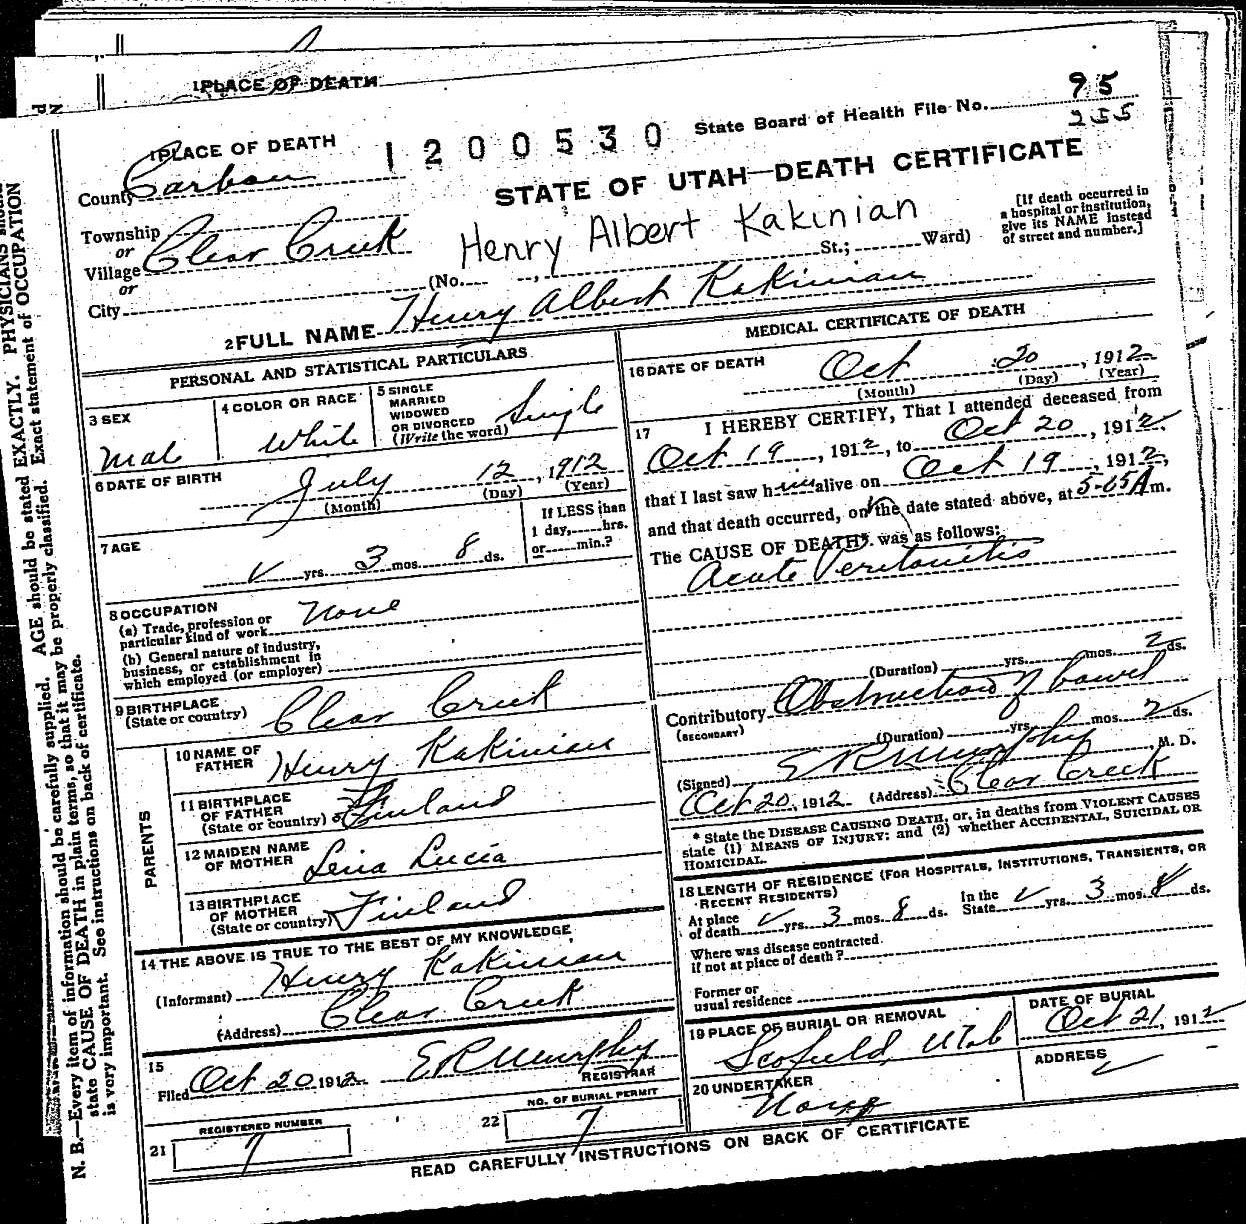 1 PLACE OF DEATH
1 PLACE OF DEATH
1200530
State Board of Health File No. 95
255
County Carbon
STATE OF UTAH—DEATH CERTIFICATE
Township
or
Village Clear Creek
or
City
Henry Albert Kakinian
(No. , St.; Ward)
[If death occurred in
a hospital or institution,
give its NAME instead
of street and number.]
2 FULL NAME Henry Albert Kakinian
PERSONAL AND STATISTICAL PARTICULARS
3 SEX
Male
4 COLOR OR RACE
White
5 SINGLE
MARRIED
WIDOWED
OR DIVORCED
(Write the word) Single
6 DATE OF BIRTH
July 12, 1912
(Month) (Day) (Year)
7 AGE
yrs. 3 mos. 8 ds.
If LESS than
1 day, hrs.
or min.?
8 OCCUPATION
(a) Trade, profession or
particular kind of work None
(b) General nature of industry,
business, or establishment in
which employed (or employer)
9 BIRTHPLACE
(State or country) Clear Creek
PARENTS
10 NAME OF
FATHER Henry Kakinian
11 BIRTHPLACE
OF FATHER
(State or country) Finland
12 MAIDEN NAME
OF MOTHER Lena Lucia
13 BIRTHPLACE
OF MOTHER
(State or country) Finland
14 THE ABOVE IS TRUE TO THE BEST OF MY KNOWLEDGE
(Informant) Henry Kakinian
(Address) Clear Creek
15
Filed Oct 20 1912 E R Murphy
REGISTRAR
21 REGISTERED NUMBER
7
22 NO. OF BURIAL PERMIT
7
MEDICAL CERTIFICATE OF DEATH
16 DATE OF DEATH
Oct 20, 1912
(Month) (Day) (Year)
17 I HEREBY CERTIFY, That I attended deceased from
Oct 19, 1912, to Oct 20, 1912.
that I last saw him alive on Oct 19, 1912,
and that death occurred, on the date stated above, at 5-05 A m.
The CAUSE OF DEATH* was as follows:
Acute Peritonitis
(Duration) yrs. mos. 2 ds.
Contributory Obstruction of bowel
(SECONDARY)
(Duration) yrs. mos. 2 ds.
(Signed) E R Murphy, M. D.
Oct 20, 1912 (Address) Clear Creek
* State the DISEASE CAUSING DEATH, or, in deaths from VIOLENT CAUSES
state (1) MEANS OF INJURY; and (2) whether ACCIDENTAL, SUICIDAL OR
HOMICIDAL.
18 LENGTH OF RESIDENCE (FOR HOSPITALS, INSTITUTIONS, TRANSIENTS, OR
RECENT RESIDENTS)
At place
of death yrs. 3 mos. 8 ds.
In the
State yrs. 3 mos. 8 ds.
Where was disease contracted
if not at place of death?
Former or
usual residence
19 PLACE OF BURIAL OR REMOVAL
Scofield Utah
DATE OF BURIAL
Oct 21, 1912
20 UNDERTAKER
None
ADDRESS
READ CAREFULLY INSTRUCTIONS ON BACK OF CERTIFICATE
N. B.—Every item of information should be carefully supplied. AGE should be stated EXACTLY. PHYSICIANS should
state CAUSE OF DEATH in plain terms, so that it may be properly classified. Exact statement of OCCUPATION
is very important. See instructions on back of certificate.